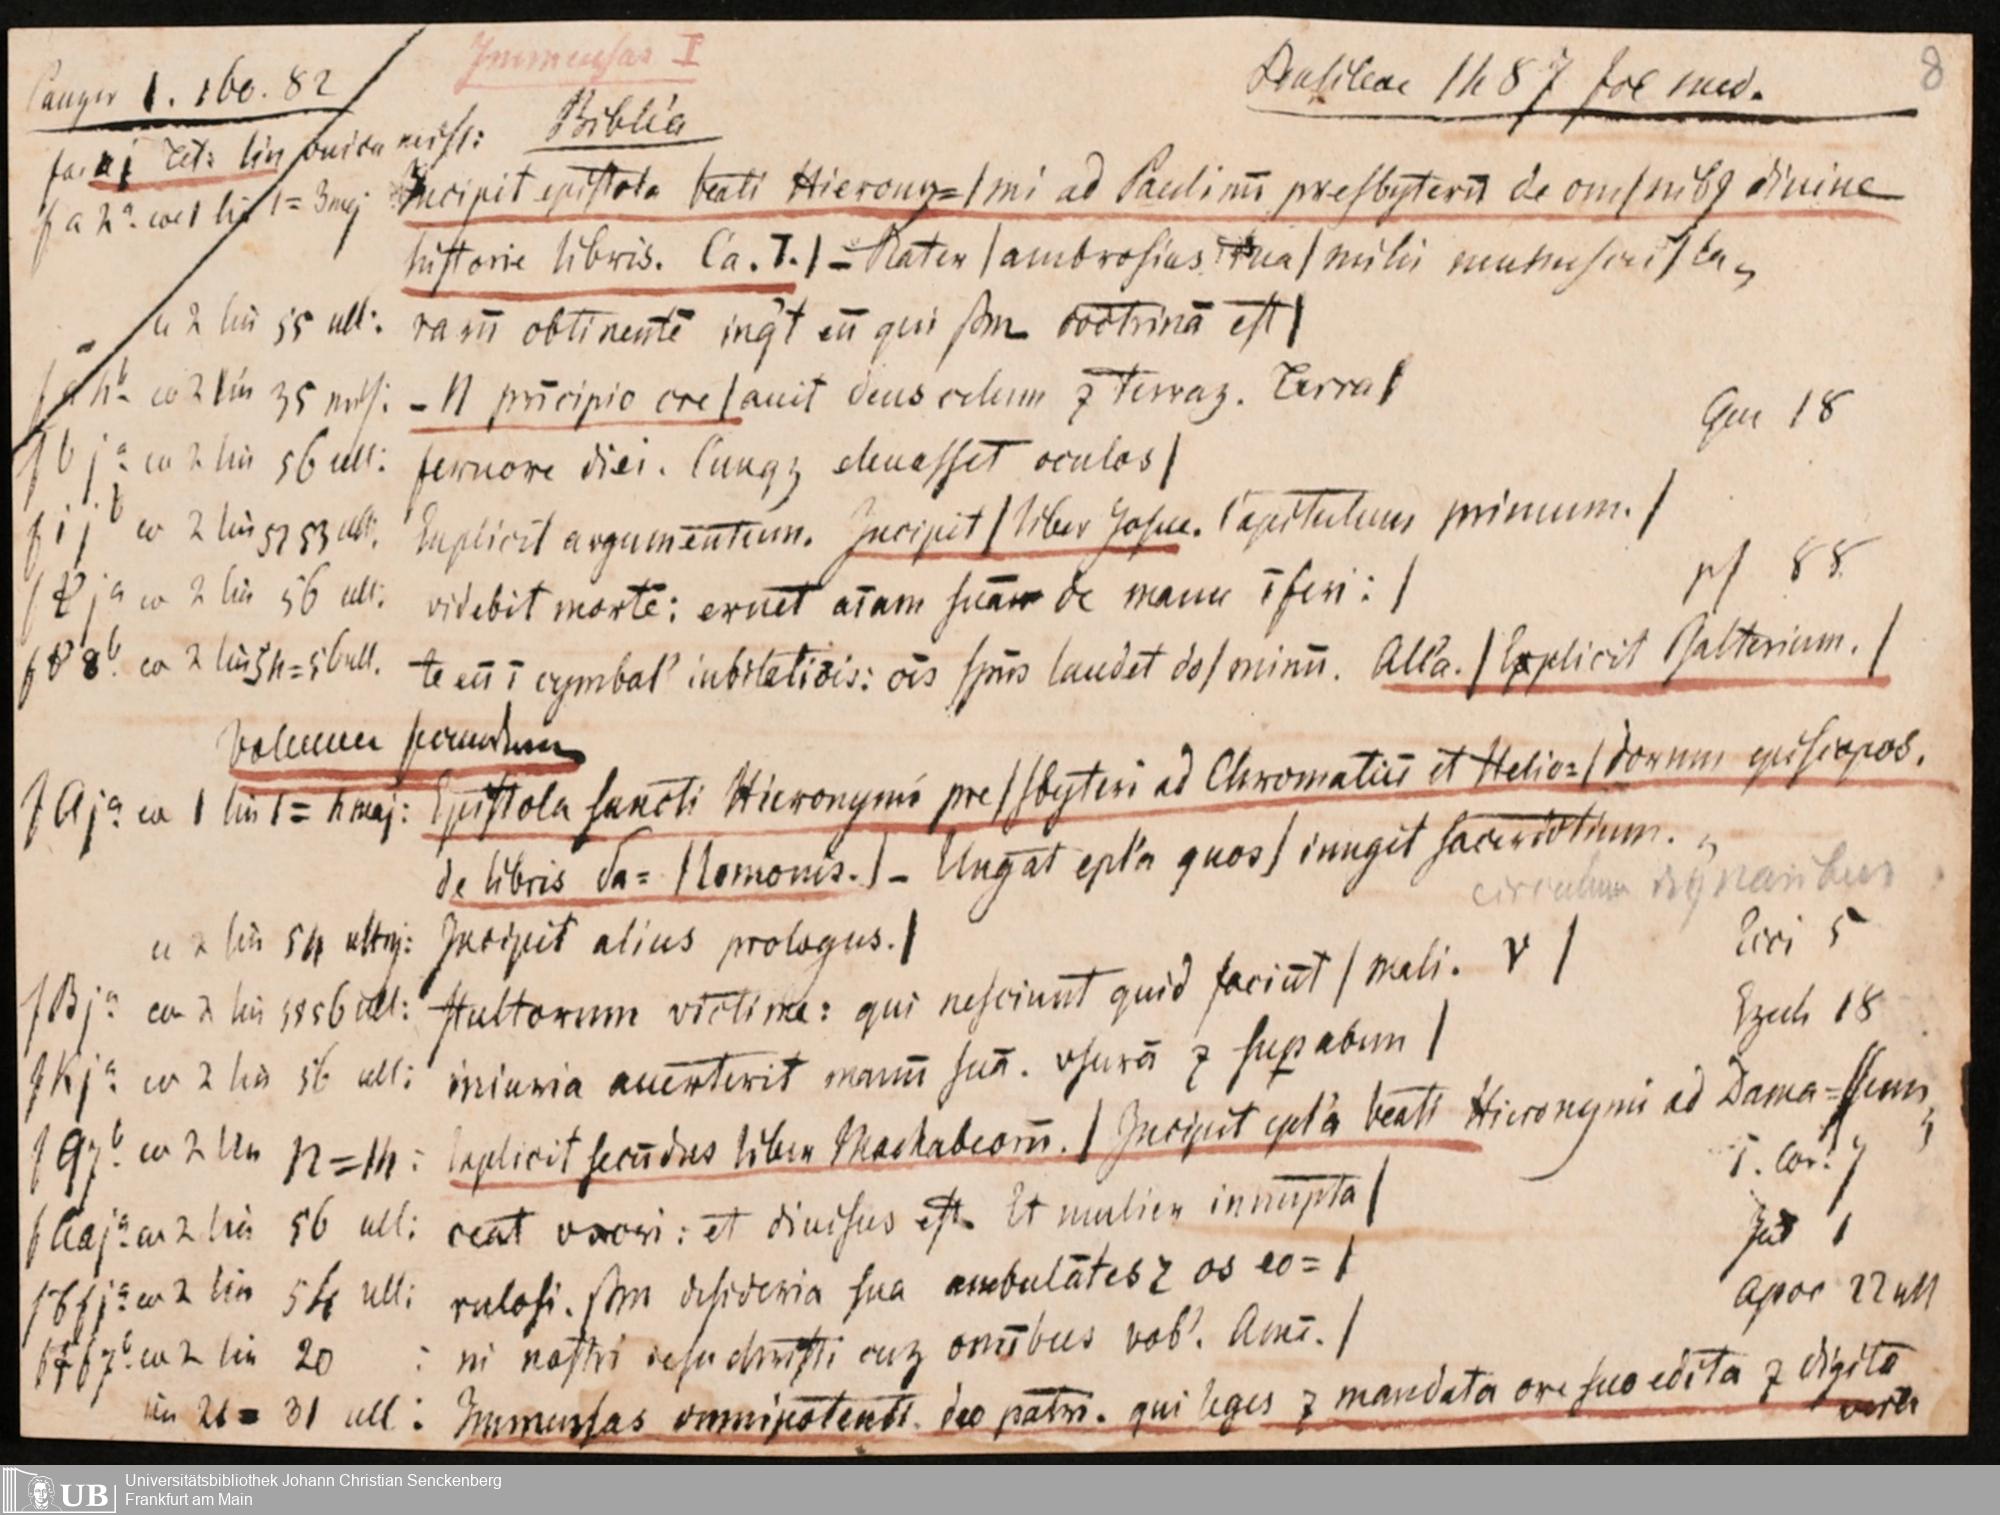 Panzer 1. 160. 82
Immensas I
Basileae 1487 fol med.
8
Biblia
fa. aj Tit: lin unica miss:
f a 2a. co 1 lin 1 = 3 maj Incipit epistola beati Hierony=/mi ad Paulinū presbyterū de om/nibꝫ diuine
historie libris. Ca. I./ – Rater /ambrosius tua/ mihi munuscu/ la
co 2 lin 55 ult: rarū obtinentē inqͥt eū qui sm doctrinā est/
co 2 lin 35 miss: – N pricipio cre/auit deus celum ⁊ terraꝫ. Terra/
Gen 18
f b ja co 2 lin 56 ult: feruore diei. Cunqꝫ eleuasset oculos/
f i jb co 2 lin 53 ult: Explicit argumentum. Incipit / liber Josue. Capitulum primum./
ps 88
ja co 2 lin 56 ult: videbit mortē: eruet aīam suā de manu īferi: /
8b. co 2 lin 54=56 ult. te eū ī cymbal' iubilatiōis: ōis spūs laudet do/minū. Alľa. / Explicit Psalterium. /
Volumen secundum
f Aja co 1 lin 1 = 4 maj: Epistola sancti Hieronymi pre/sbyteri ad Chromatiū et Helio=/dorum episcopos.
de libris Sa= /lomonis./ – Ungat epľa quos/ iungit sacerdotium.
circulum
co 2 lin 54 Incipit alius prologus./
Ecci 5
f Bja co 2 lin 56 ult: stultorum victime: qui nesciunt quid faciūt / mali. V /
Ezech 18
f Kja co 2 lin 56 ult: iniuria auerterit manū suā. vsurā ⁊ supabun /
co 2 lin 12=14: Explicit secūdus liber Machabeorū. / Incipit epľa beati Hieronymi ad Dama=/sum
I. Cor: 7
f Aaja co 2 lin 56 ult: ceat vxori: et diuisus est. Et mulier innupta/
Jud 1
co 2 lin 54 ult: rulosi. sm desideria sua ambulātes ⁊ os eo= /
Apoc 22 ult
co 2 lin 20 : ni nostri iesu christi cuꝫ omībus vob'. Amē. /
lin 21 = 31 ult: Immensas omnipotenti deo patri. qui leges ⁊ mandata ore suo edita ⁊ digito
UB
Universitätsbibliothek Johann Christian Senckenberg
Frankfurt am Main